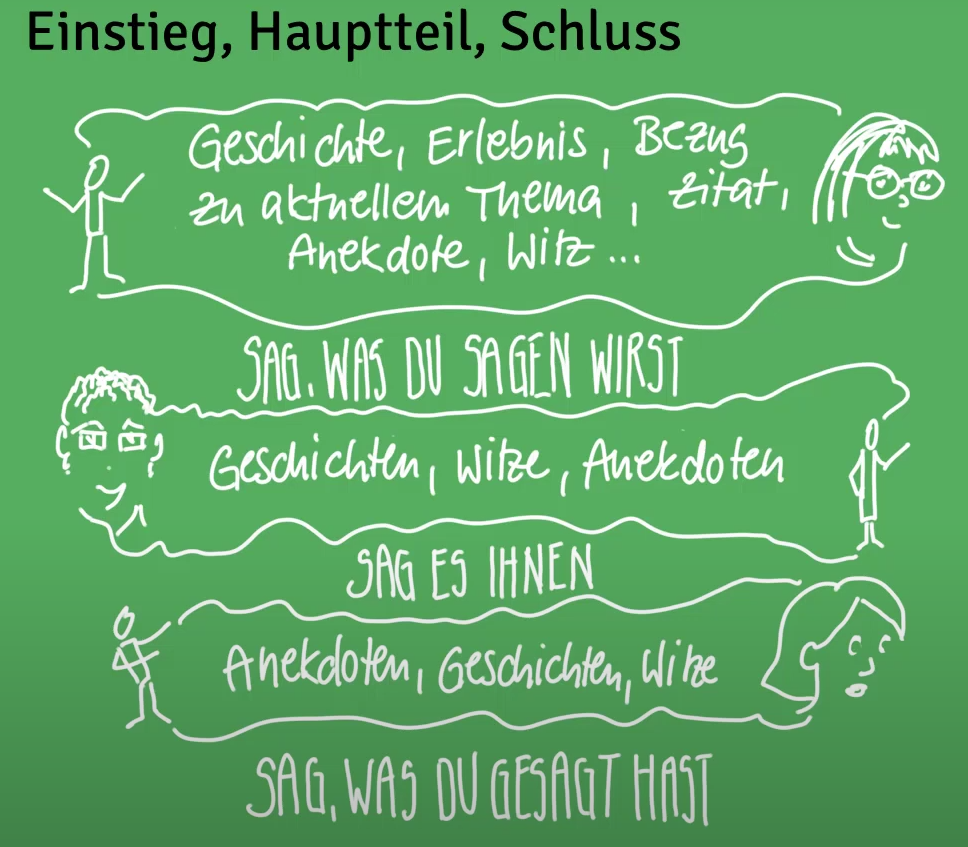 Einstieg, Hauptteil, Schluss
Geschichte, Erlebnis, Bezug
zu aktuellem Thema, Zitat,
Anekdote, Witz ...
SAG, WAS DU SAGEN WIRST
Geschichten, Witze, Anekdoten
SAG ES IHNEN
Anekdoten, Geschichten, Witze
SAG, WAS DU GESAGT HAST